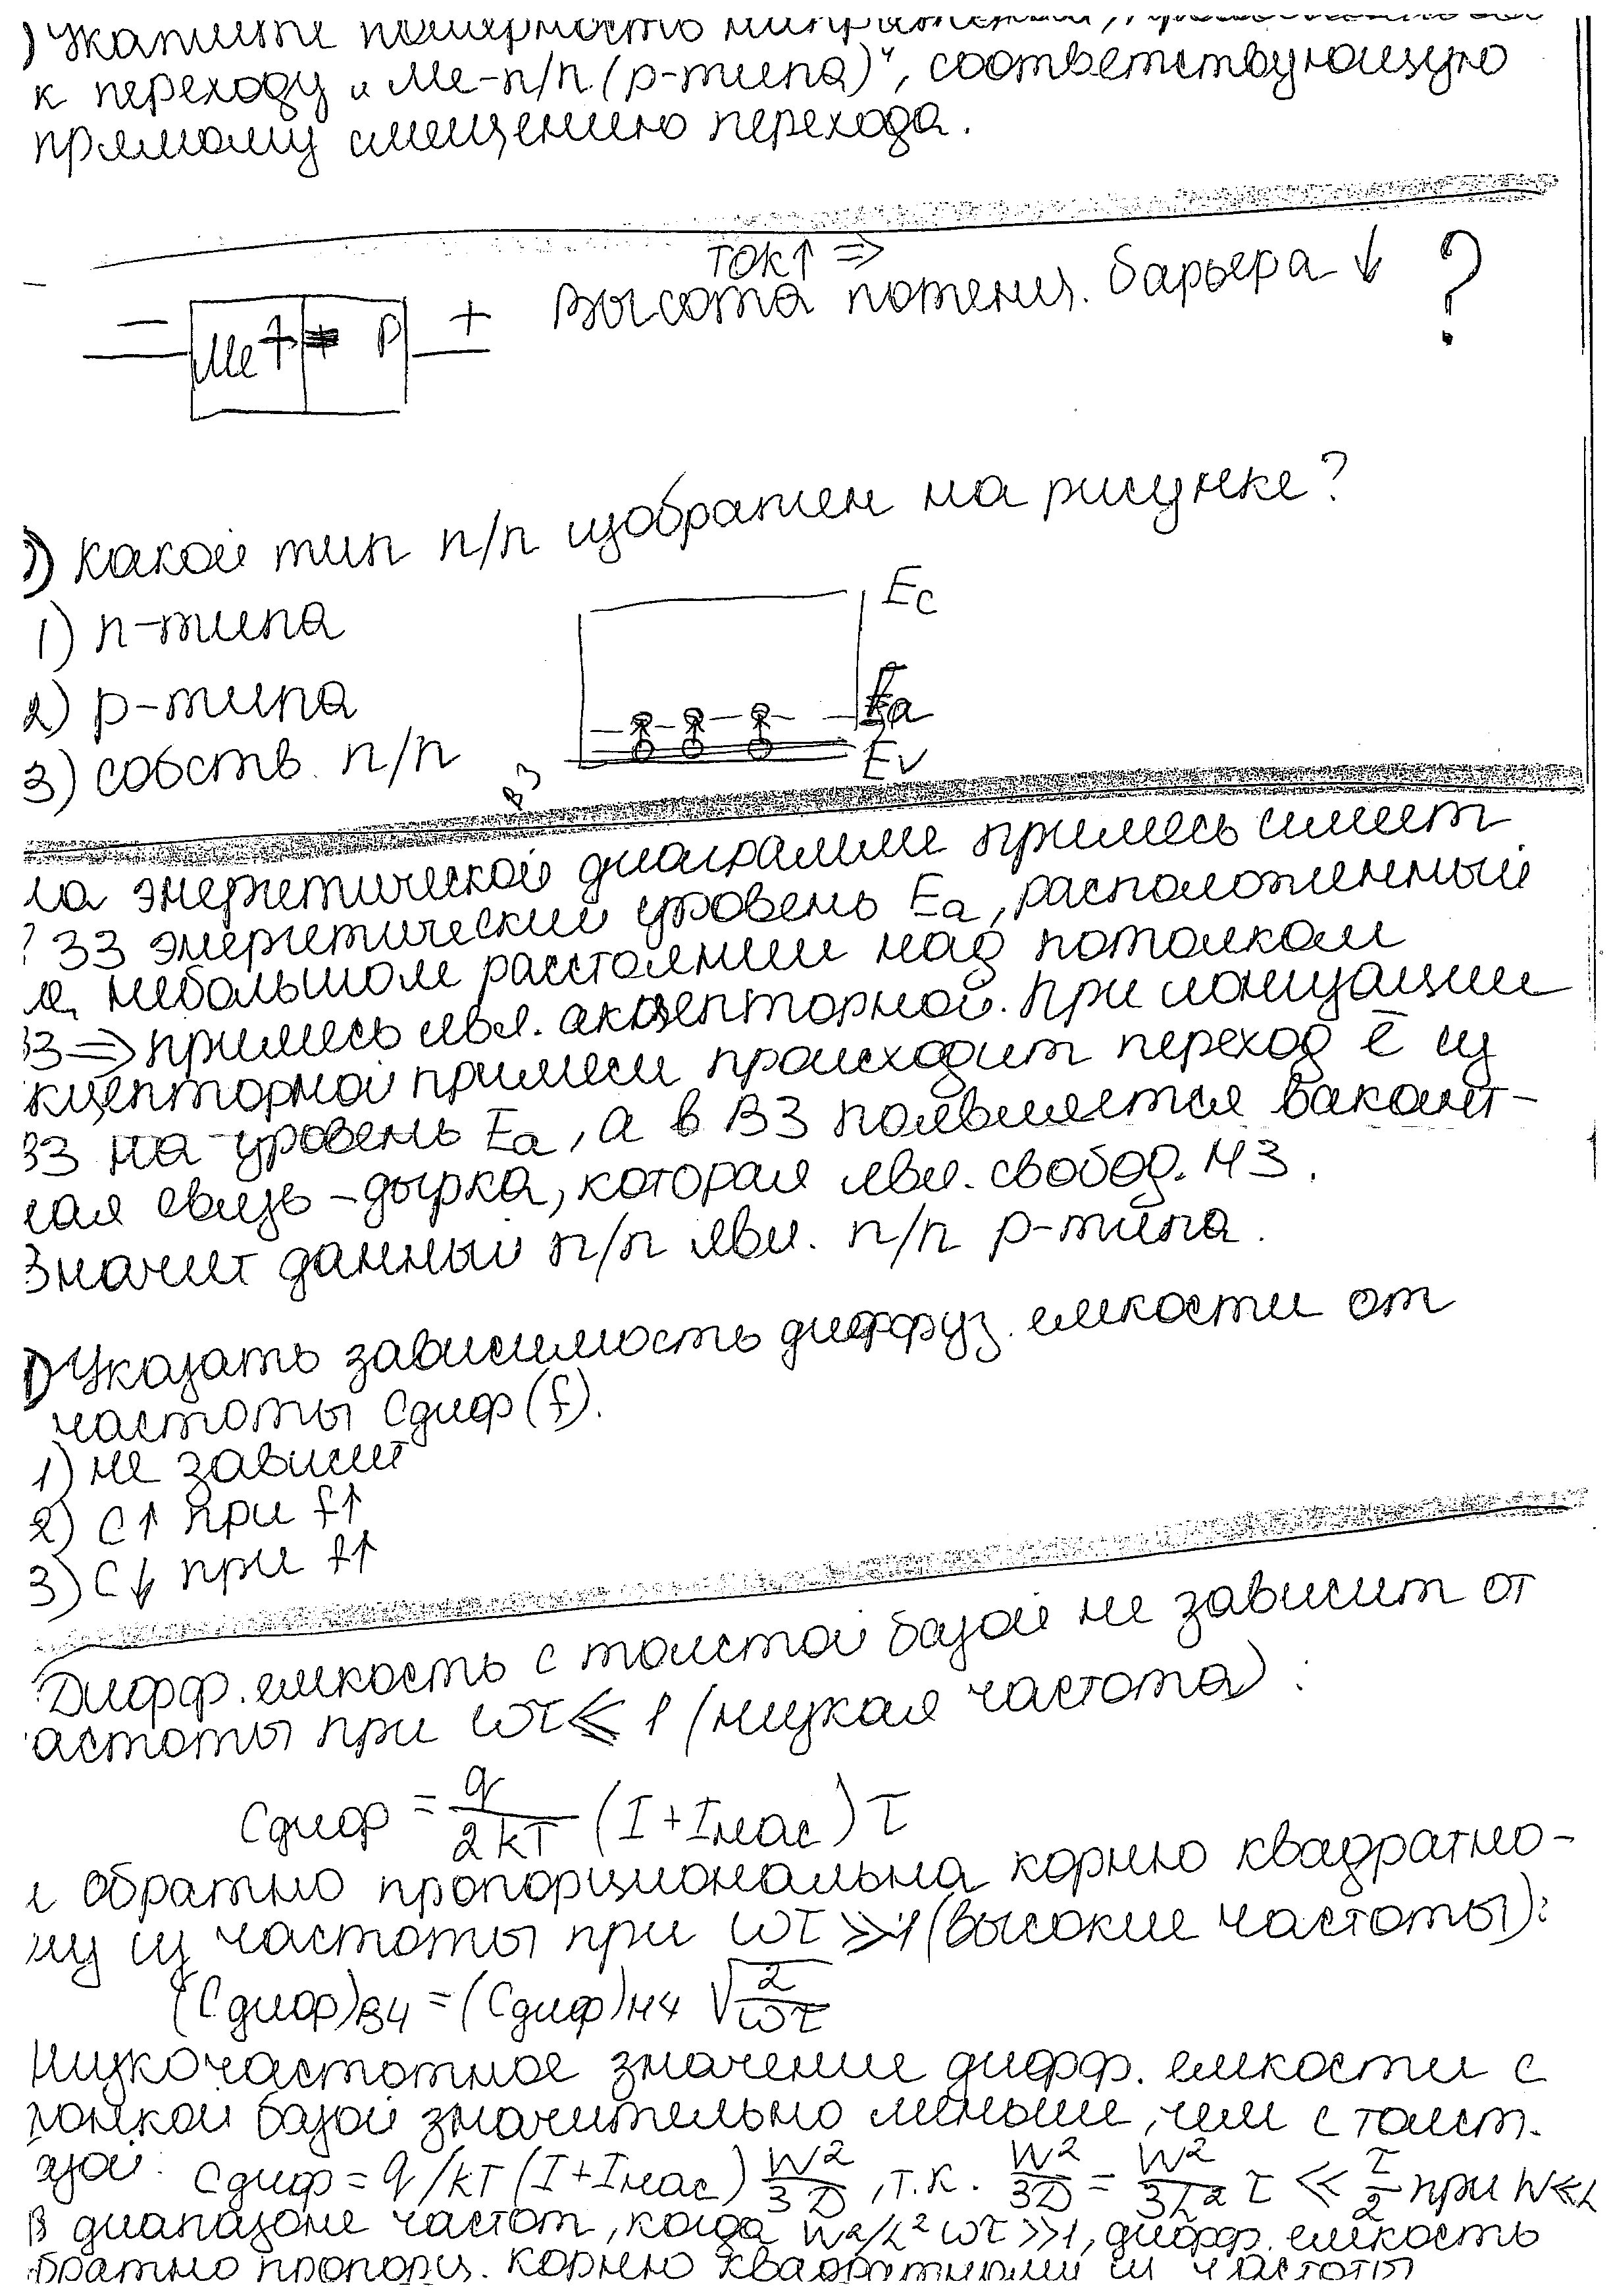 ) Укажите полярность
к переходу „Ме-п/п (р-типа)", соответствующую
прямому смещению перехода.
ток↑ ⇒
высота потенц. барьера ↓ ?
− Ме + р +
) Какой тип п/п изображен на рисунке?
1) n-типа
2) р-типа
3) собств. п/п
Ec
Ea
Ev
ВЗ
на энергетической диаграмме примесь имеет
ЗЗ энергетический уровень Ea, расположенный
на небольшом расстоянии над потолком
ВЗ ⇒ примесь явл. акцепторной. При ионизации
кцепторной примеси происходит переход ē из
ВЗ на уровень Ea, а в ВЗ появляется вакант-
ная связь – дырка, которая явл. свобод. НЗ.
Значит данный п/п явл. п/п р-типа.
) Указать зависимость диффуз. емкости от
частоты Cдиф(f).
1) не зависит
2) C↑ при f↑
3) C↓ при f↑
Дифф. емкость с толстой базой не зависит от
астоты при ωτ ≪ 1 (низкая частота):
Cдиф = q/2kT (I + Iнас) τ
и обратно пропорциональна корню квадратно-
му из частоты при ωτ ≫ 1 (высокие частоты):
(Cдиф)ВЧ = (Cдиф)НЧ √2/ωτ
Низкочастотное значение дифф. емкости с
тонкой базой значительно меньше, чем с толст.
азой: Cдиф = q/kT (I + Iнас) W²/3D, т.к. W²/3D = W²/3L² τ ≪ τ/2 при W≪L
В диапазоне частот, когда W²/L² ωτ ≫ 1, дифф. емкость
братно пропорц. корню квадратному из частоты